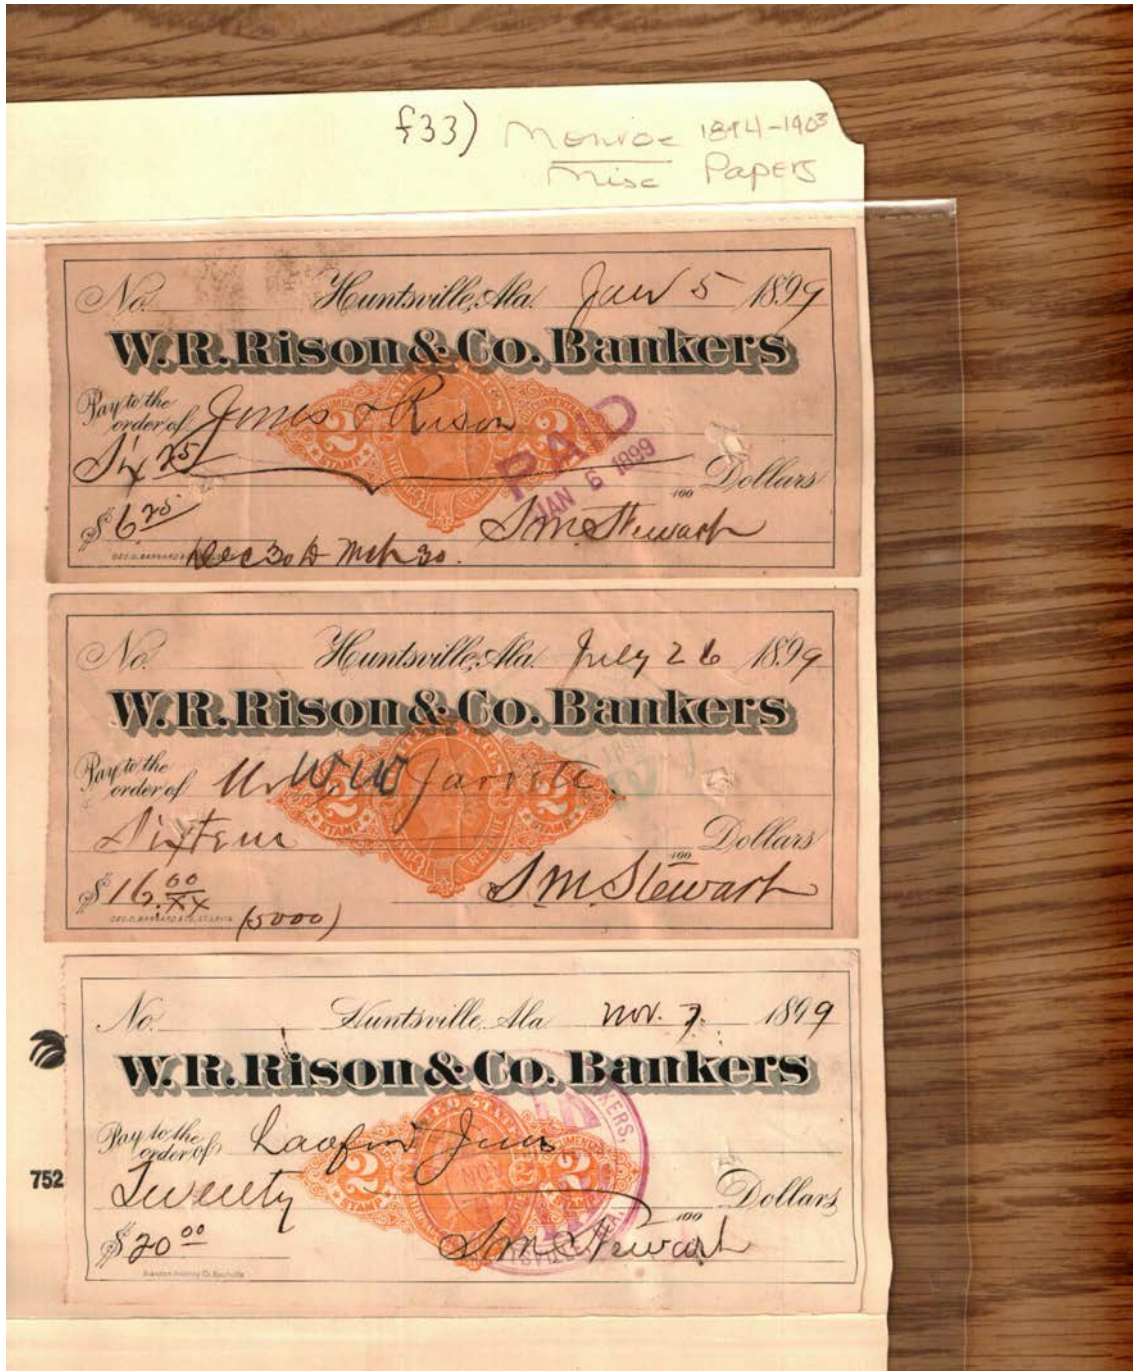 f33) Monroe 1894-1903
Misc Papers
No. Huntsville, Ala. Jan 5 1899
W. R. Rison & Co. Bankers
Pay to the
order of Jones & Rison
Six 25/
100 Dollars
$ 6.25 S M Stewart
Dec 30 to Mch 30.
STAMP
2 2
PAID
JAN 6 1899
No. Huntsville, Ala. July 26 1899
W. R. Rison & Co. Bankers
Pay to the
order of W. W
Sixteen
100 Dollars
$ 16.00/xx S. M. Stewart
(5000)
STAMP
2 2
No. Huntsville, Ala. Nov. 7. 1899
W. R. Rison & Co. Bankers
Pay to the
order of
Twenty
100 Dollars
$ 20.00 S M Stewart
STAMP
2 2
752